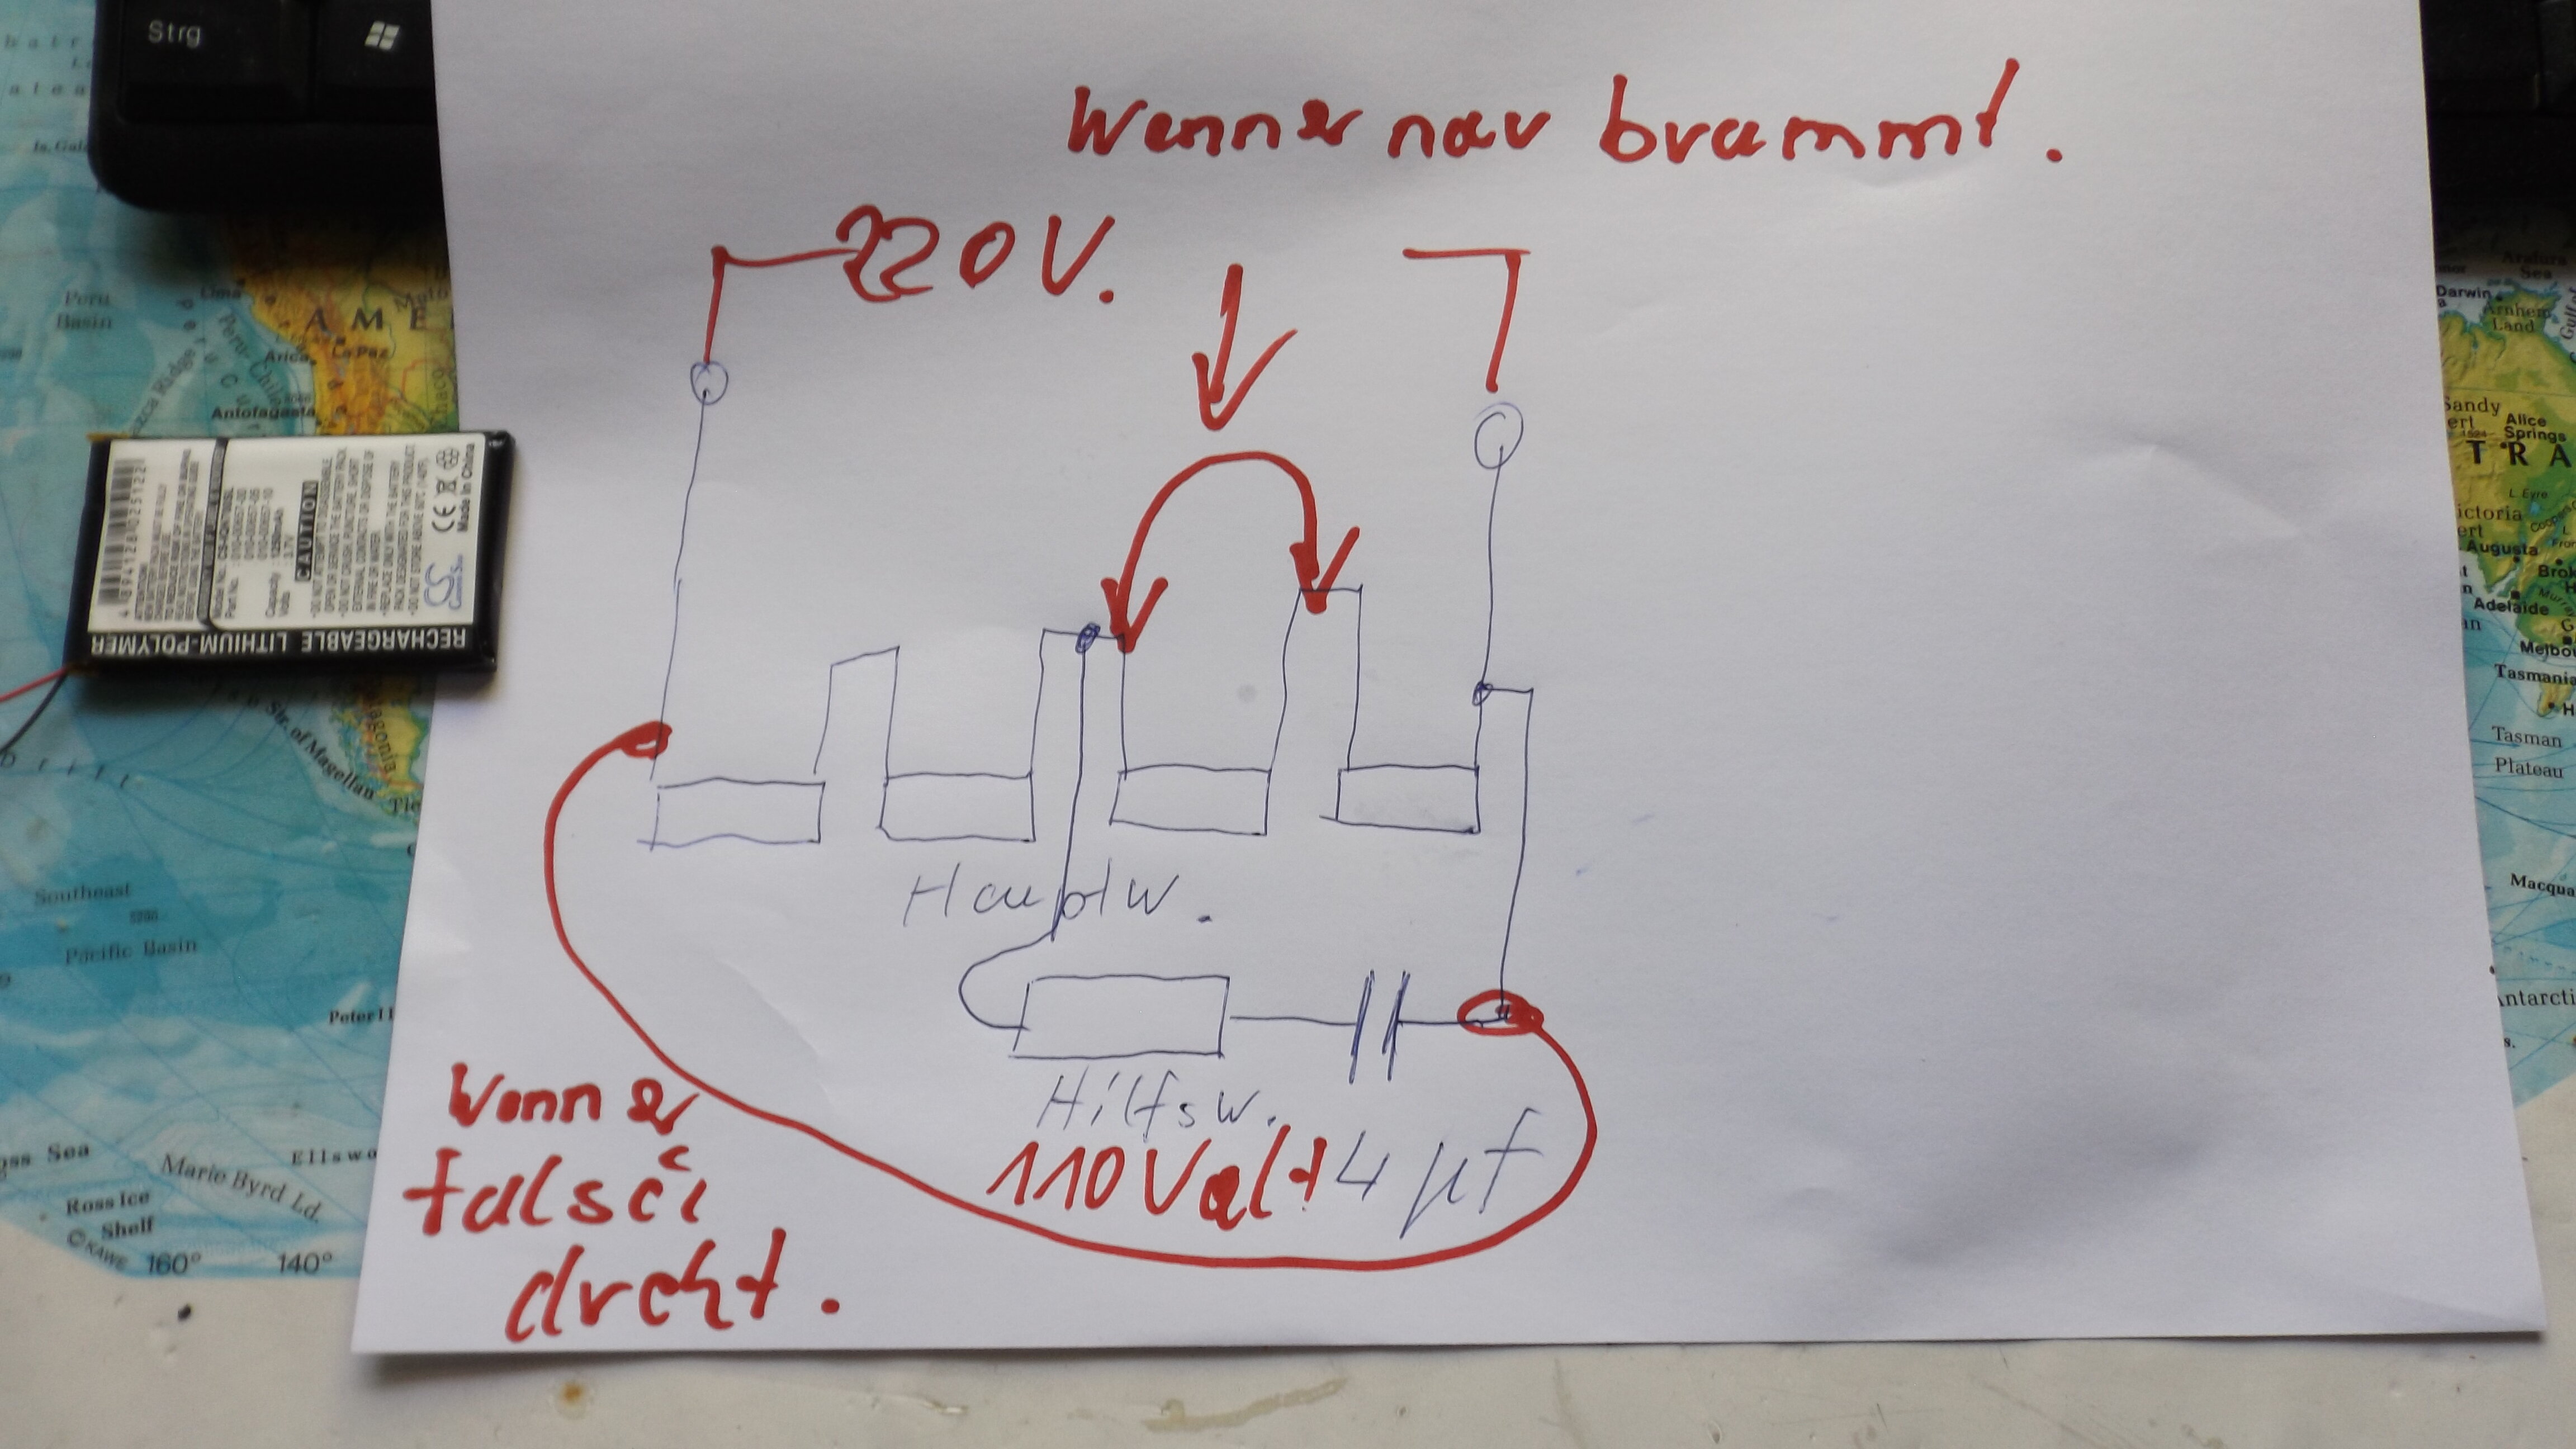 Strg
Wenn er nur brummt.
220V.
Hauptw.
Hilfsw.
110 Volt! 4 µF
Wenn er
falsch
dreht.
RECHARGEABLE LITHIUM-POLYMER
CAUTION
Made in China
CE
Peru
Basin
Lima
AME
Arica
La Paz
Antofagasta
Str. of Magellan
Southeast
Pacific Basin
Peter I
Ellswo
Marie Byrd Ld.
Ross Ice
Shelf
© KAWE
160°
140°
ss Sea
Darwin
Arnhem
Land
Sandy
Alice
Springs
TRA
L. Eyre
Augusta
Adelaide
Melbou
Tasmania
Tasman
Plateau
Macqua
Antarcti